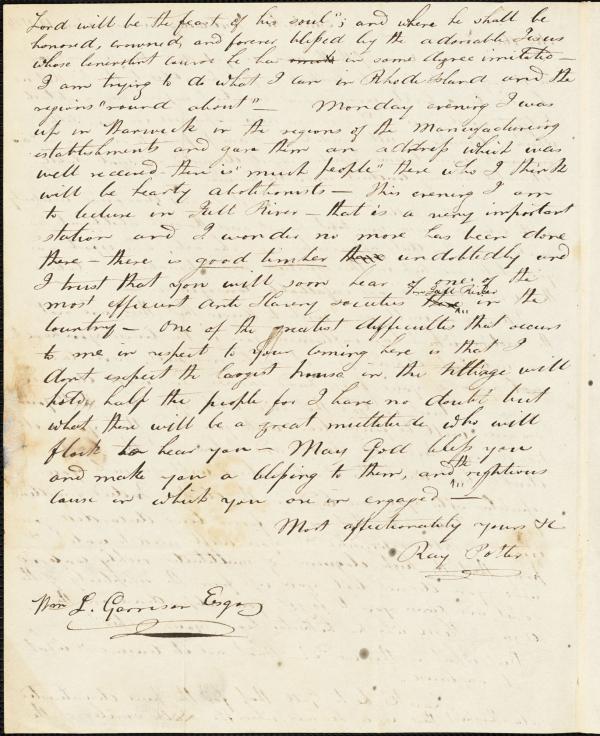 Lord will be the feast of his soul"; and where he shall be
honored, crowned, and forever blessed by the adorable Jesus
whose benevolent
I am trying to do what I can in Rhode Island and the
regions "round about" — Monday evening I was
up in Warwick in the regions of the Manufacturing
establishments and gave them an address which was
well received there is "much people" there who I think
will be hearty abolitionists — This evening I am
to lecture in Fall River — that is a very important
station and I wonder no more has been done
there — there is good timber there undoubtedly and
I trust that you will soon hear of one of the
most efficient Anti Slavery societies in Fall River in the
country — One of the greatest difficulties that occurs
to me in respect to your coming here is that I
dont expect the largest house in the village will
hold half the people for I have no doubt but
what there will be a great multitude who will
flock to hear you — May God bless you
and make you a blessing to them, and the rightious
cause in which you are in engaged —
Most affectionately yours &c
Ray Potter
Wm L. Garrison Esqr